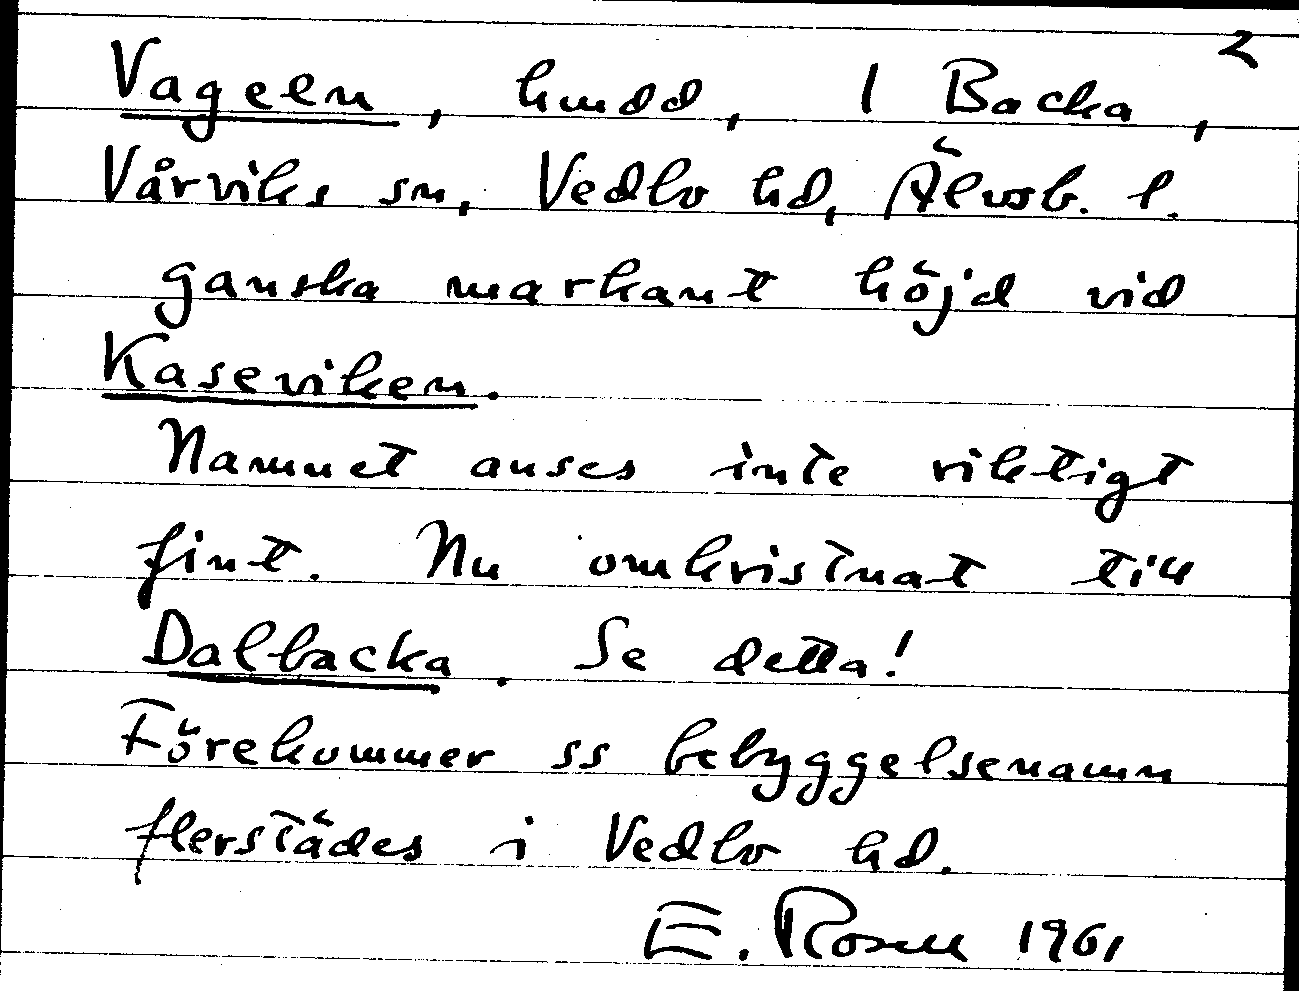 2
Vageln, hmdd, 1 Backa,
Vårviks sn, Vedbo hd, Älvsb. l.
ganska markant höjd vid
Kaseviken.
Namnet anses inte riktigt
fint. Nu omkristnat till
Dalbacka. Se detta!
Förekommer ss bebyggelsenamn
flerstädes i Vedbo hd.
E. Rosell 1961